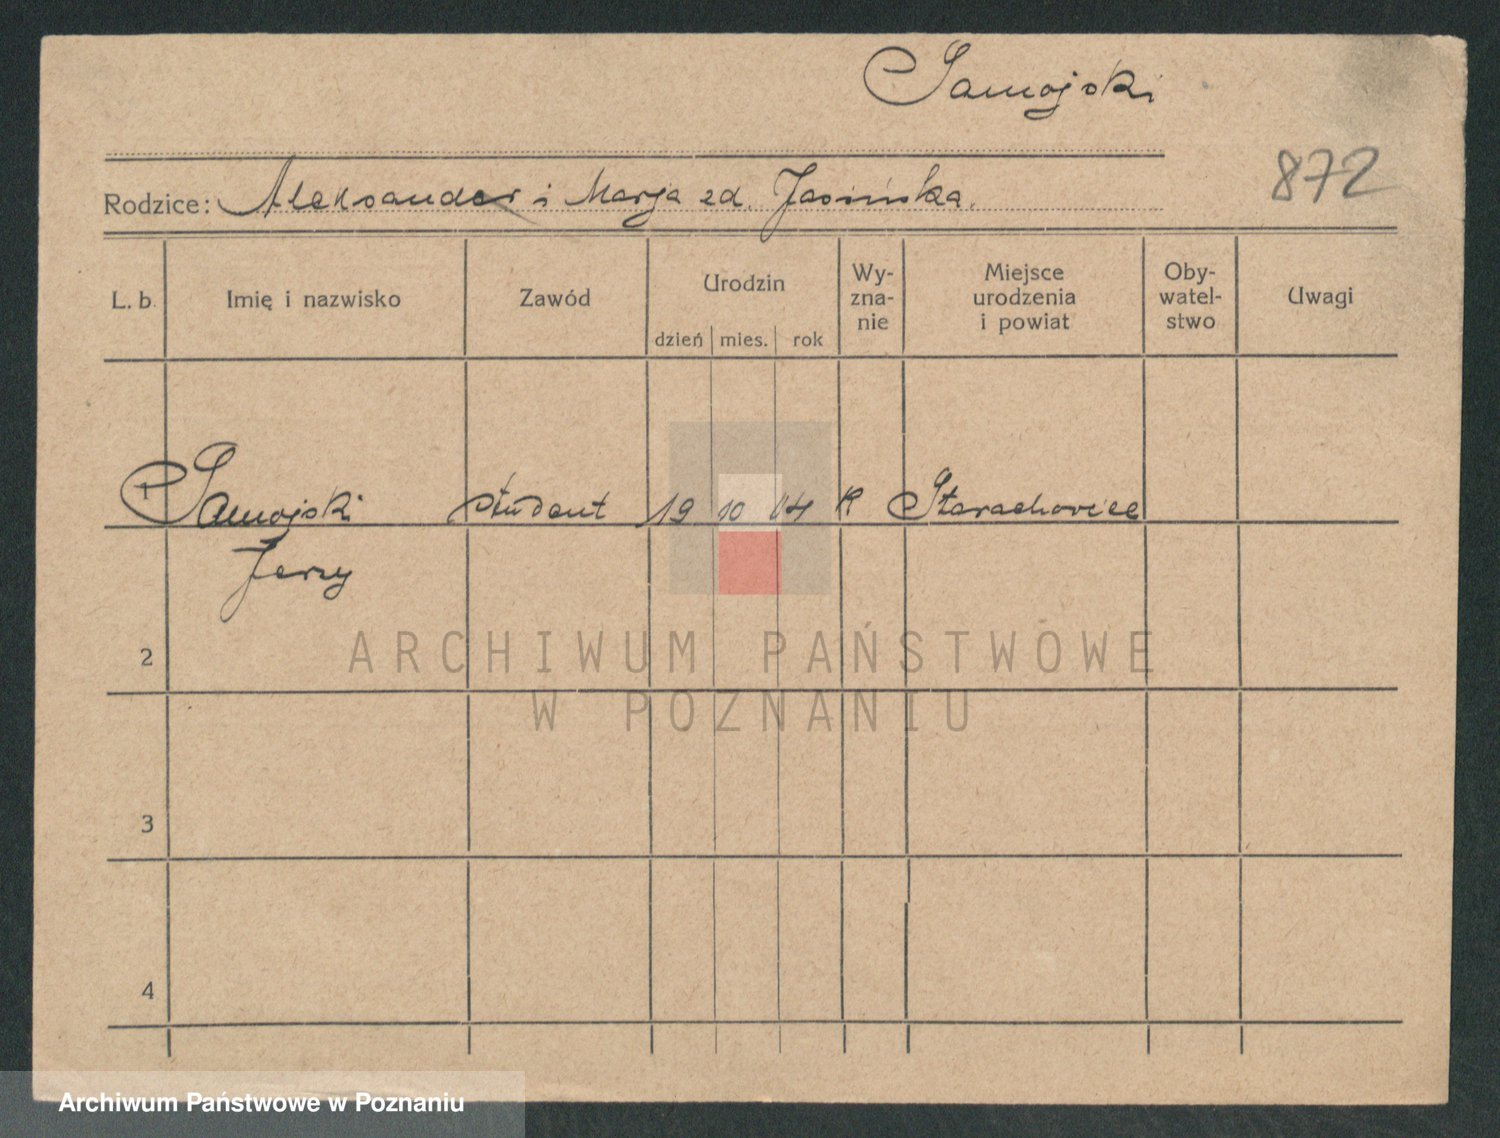 Samojski
872
Rodzice: Aleksander i Marja zd. Jasińska.
L. b. Imię i nazwisko Zawód Urodzin dzień mies. rok Wy- zna- nie Miejsce urodzenia i powiat Oby- watel- stwo Uwagi
1 Samojski student 19 10 04 R Starachowice
Jerzy
2
ARCHIWUM PAŃSTWOWE
W POZNANIU
3
4
Archiwum Państwowe w Poznaniu